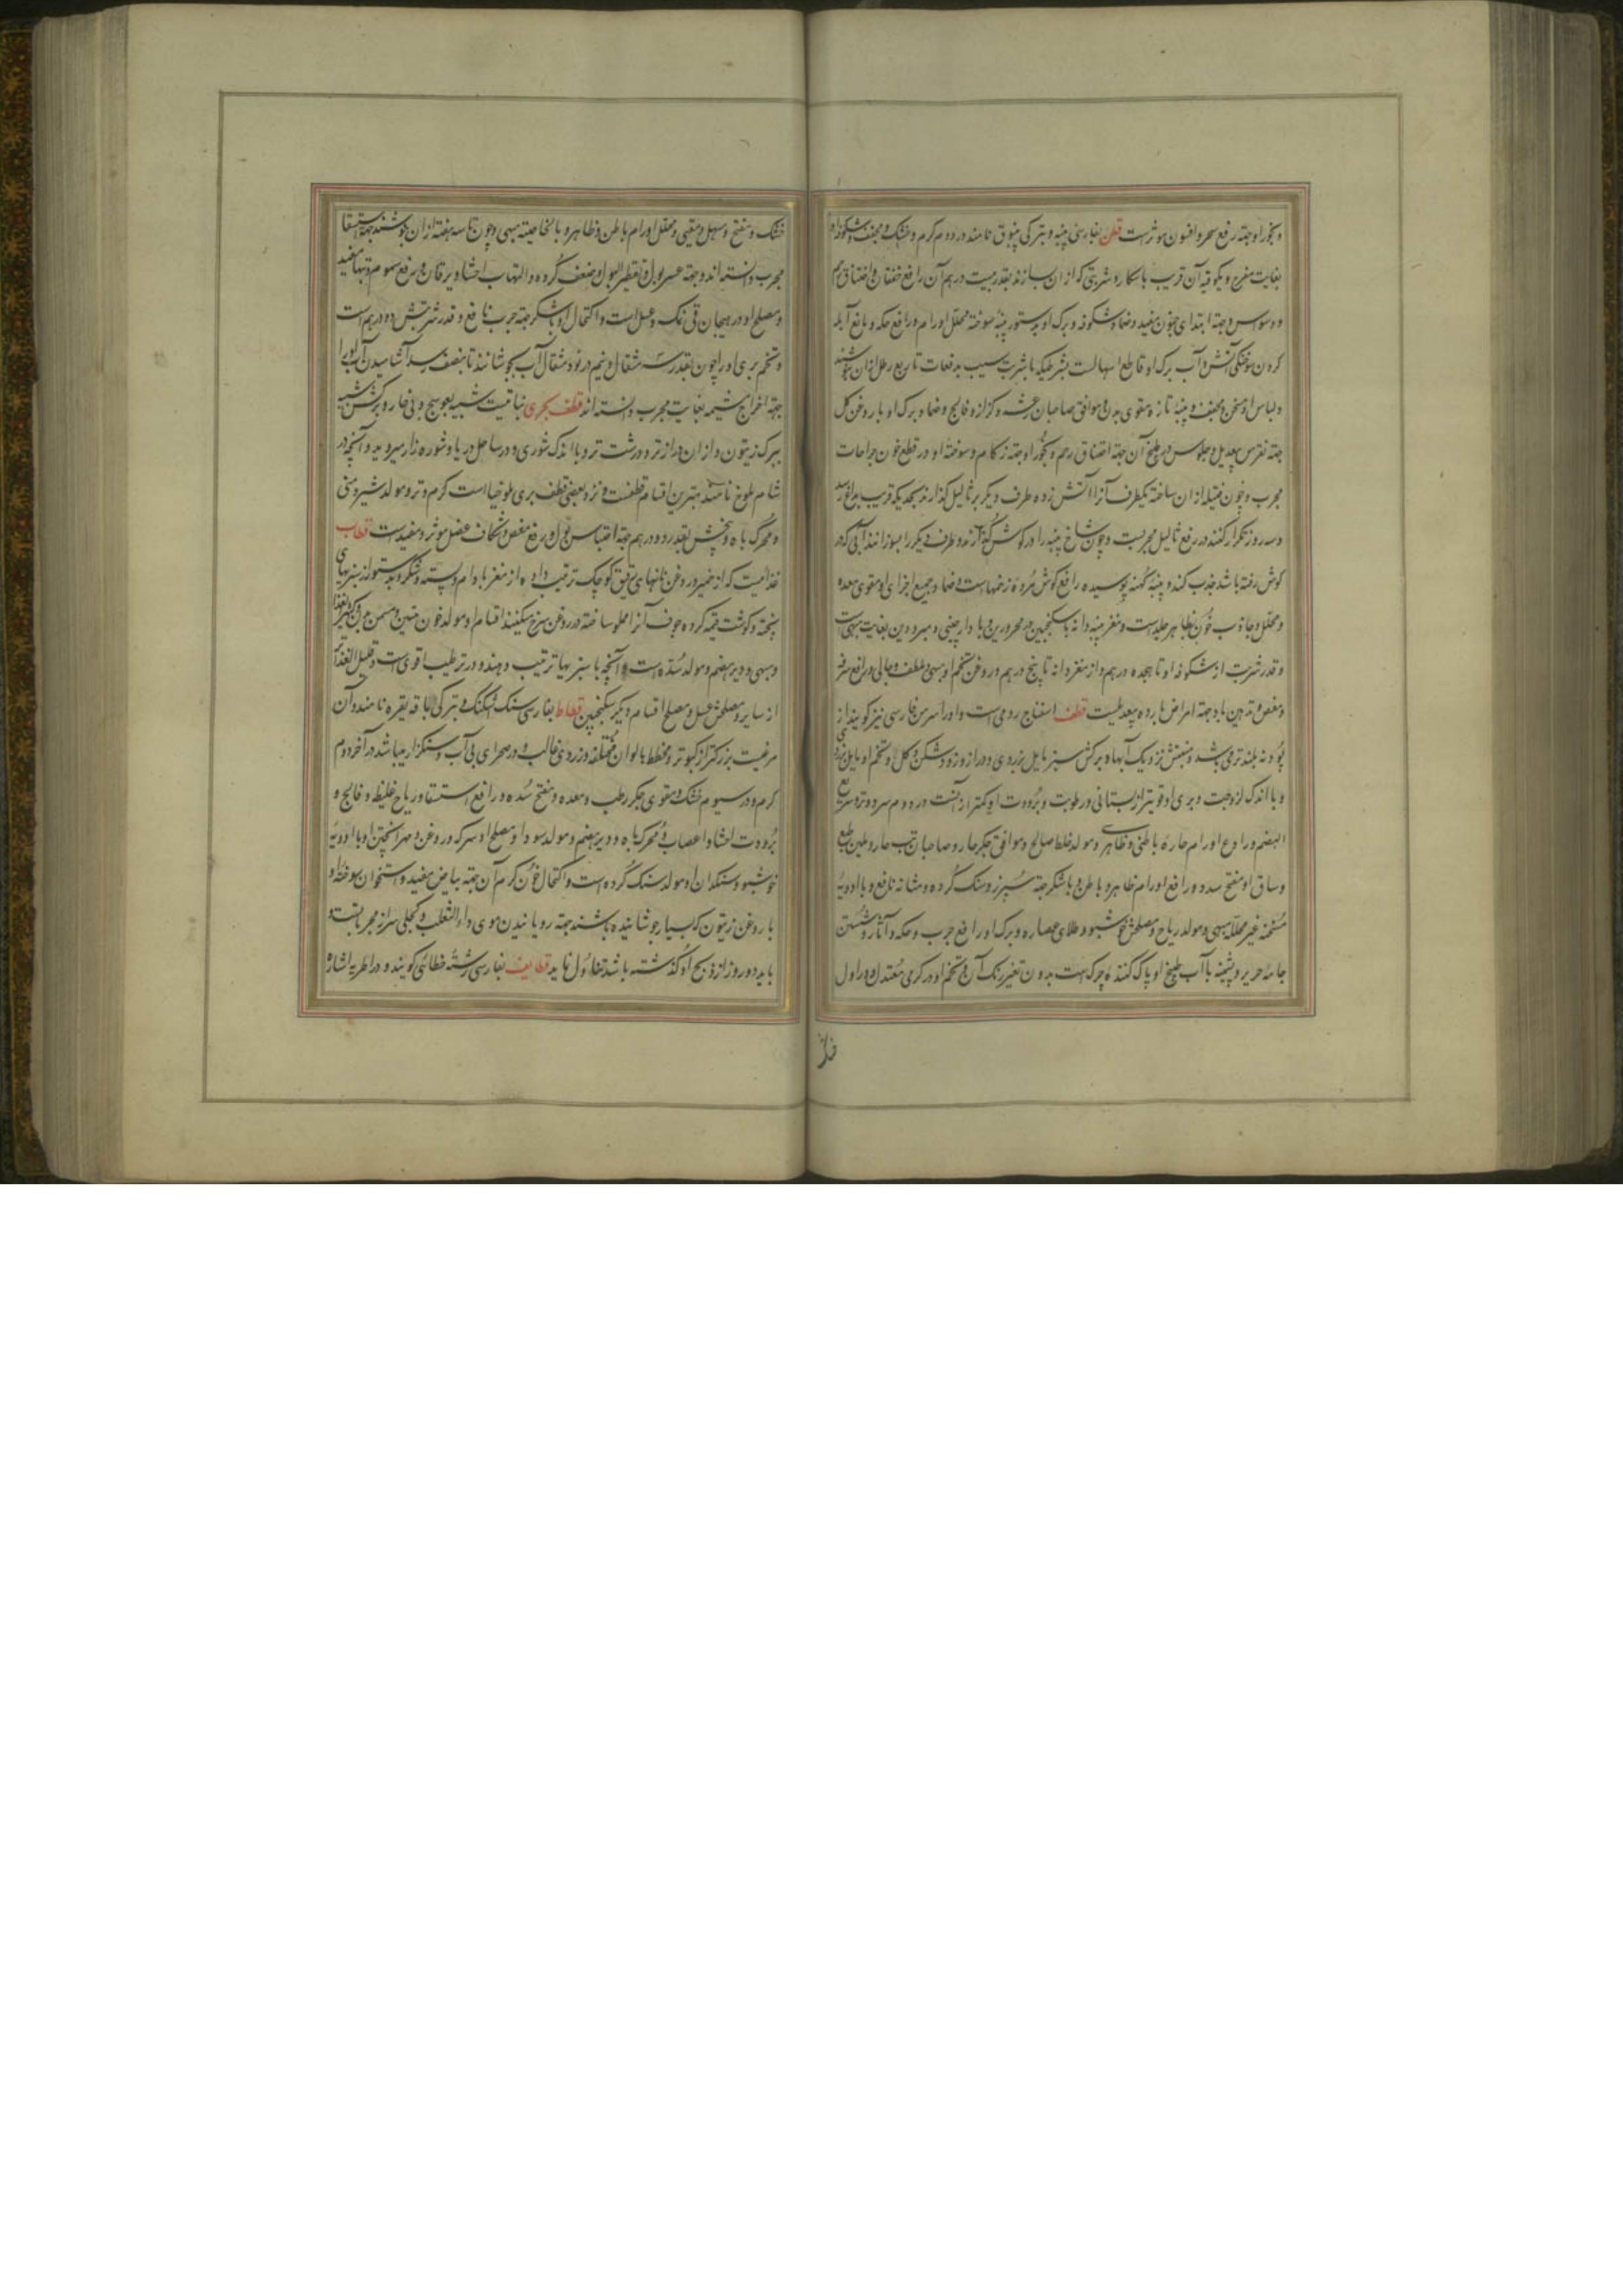 و بخور او جهته رفع سحر و افسون موثرست قطن بفارسی پنبه و بترکی پنبوق نامند در دوم کرم و خشک و مجفف و شکوفه او
بغایت مفرح و یکوقیه آن قریب باسکار و شربتی که از ان سازند بقدر بیست درهم آن رافع خفقان و اختناق رحم
و وسواس و جهته ابتدای جنون مفید و ضماد شکوفه و برک او بدستور پنبه سوخته محلل اورام و رافع حکه و مانع آبله
کردن سوختکی آتش و آب برک او قاطع اسهالست بشرطیکه با شربت سیب بدفعات تا ربع رطل ازان بنوشند
و لباس او مسخن و مجفف و پنبه تازه مقوی بدن و موافق صاحبان رعشه و کزاز و فالج و ضماد برک او با روغن کل
جهته نقرس بیعدیل و جلوس در طبیخ آن جهته اختناق رحم و بخور او جهته زکام و سوخته او در قطع خون جراحات
مجرب و چون فتیله از ان ساخته یکطرف آنرا آتش زده و طرف دیکر بر ثالیل کذارند بحدیکه قریب بداغ رسد
و سه روز تکرار کنند در رفع ثالیل مجربست و چون شاخ پنبه را در کوش کذارند و طرف دیکر را بسوزانند آبی که در
کوش رفته باشد جذب کند و پنبه کهنه پوسیده رافع کوش مرده زخمهاست و ضماد جمیع اجزای او مقوی معده
و محلل و جاذب خون بظاهر جلدست و مغز پنبه دانه با سکنجبین در محرورین و با دارچینی در مبرودین بغایت مبهی است
و قدر شربت از شکوفه او تا هجده درهم و از مغز دانه تا پنج درهم و روغن تخم او مبهی و ملطف و جالی و رافع سرفه
و مغص و تدهین باو جهته امراض بارده بیعدیلست قطف اسفناج رومی است و او را سرمق فارسی نیز کویند از
پودنه بلندتر می باشد و منبتش نزدیک آبها و برکش سبز مایل بزردی و دراز و زود شکن و کل و تخم او مایل بزردی
و با اندک لزوجت و بری او قویتر از بستانی و رطوبت و برودت او کمتر از آنست در دوم سرد و تر و سریع
الهضم و رادع اورام حاره باطنی و ظاهری و مولد خلط صالح و موافق جکر حار و صاحبان تب حار و ملین طبع
و ساق او مفتح سدد و رافع اورام ظاهر و باطن و با شکر جهته سپرز و سنک کرده و مثانه نافع و با ادویه
مسخنه غیر محلله مبهی و مولد ریاح و مصلحش خوشبو و طلای عصاره و برک او رافع جرب و حکه و آثار و شستن
جامه حریر و پشمینه با آب طبیخ او پاک کننده چرک است بدون تغییر رنک آن و تخم او در کرمی معتدل و در اول
خشک و مفتح و مسهل و مقیی و محلل اورام باطن و ظاهر و بالخاصیته مبهی و چون تا سه هفته ازان بنوشند جهته استسقا
مجرب دانسته اند و جهته عسر بول و تقطیر البول و ضعف کرده و التهاب احشا و یرقان و رفع سموم و تبها مفید
و مصلح او در هیجان قی نمک و عسل است و اکتحال او با شکر جهته جرب نافع و قدر شربتش دو درهم است
و تخم بری او را چون بقدر سه مثقال و نیم در نود مثقال آب بجوشانند تا بنصف رسد آشامیدن آب او را
جهته اخراج مشیمه بغایت مجرب دانسته اند قطف بحری نباتیست شبیه بعوسج و بی خار و برکش شبیه
ببرک زیتون و از ان درازتر و درشت تر و با اندک شوری و در ساحل دریا و شوره زار میروید و آنچه در
شام ملوخ نامند بهترین اقسام قطفست و نزد بعضی قطف بری ملوخیا است کرم و تر و مولد شیر و منی
و محرک باه و بخش بقدر دو درهم جهته احتباس بول و رفع مغص و شکاف عضل موثر و مفیدست قطاب
غذائیست که از خمیر و روغن نانهای رقیق کوچک ترتیب داده از مغز بادام و پسته و شکر و بدستور از سبزیهای
پخته و کوشت قیمه کرده جوف آنرا مملو ساخته در روغن سرخ میکنند اقسام او مولد خون متین و مسمن بدن و کثیر الغذا
و مبهی و دیر هضم و مولد سده است و آنچه با سبزیها ترتیب دهند در ترطیب اقوی است و قلیل الغذاتر
از سایر و مصلحش عسل و مصلح اقسام دیکر سکنجبین قطاط بفارسی سنک اشکنک و بترکی باقه یقره نامند و آن
مرغیست بزرکتر از کبوتر و مخطط بالوان مختلفه و زردی غالب و در صحرای بی آب و سنکزار میباشد در آخر دوم
کرم و در سیوم خشک و مقوی جکر رطب و معده و مفتح سده و رافع استسقا و ریاح غلیظ و فالج و
برودت احشا و اعصاب و محرک باه و دیر هضم و مولد سودا و مصلح او سرکه و روغن و مهرا پختن او با ادویه
خوشبو و سنکدان او مولد سنک کرده است و اکتحال خون کرم آن جهته بیاض مفید و استخوان سوخته او
با روغن زیتون که بسیار جوشانیده باشند جهته رویانیدن موی داء الثعلب و کچلی سر از مجرباتست و
باید دو روز از ذبح او کذشته باشد تا تناول نماید قطایف بفارسی رشته خطائی کویند و در اطریه اشاره